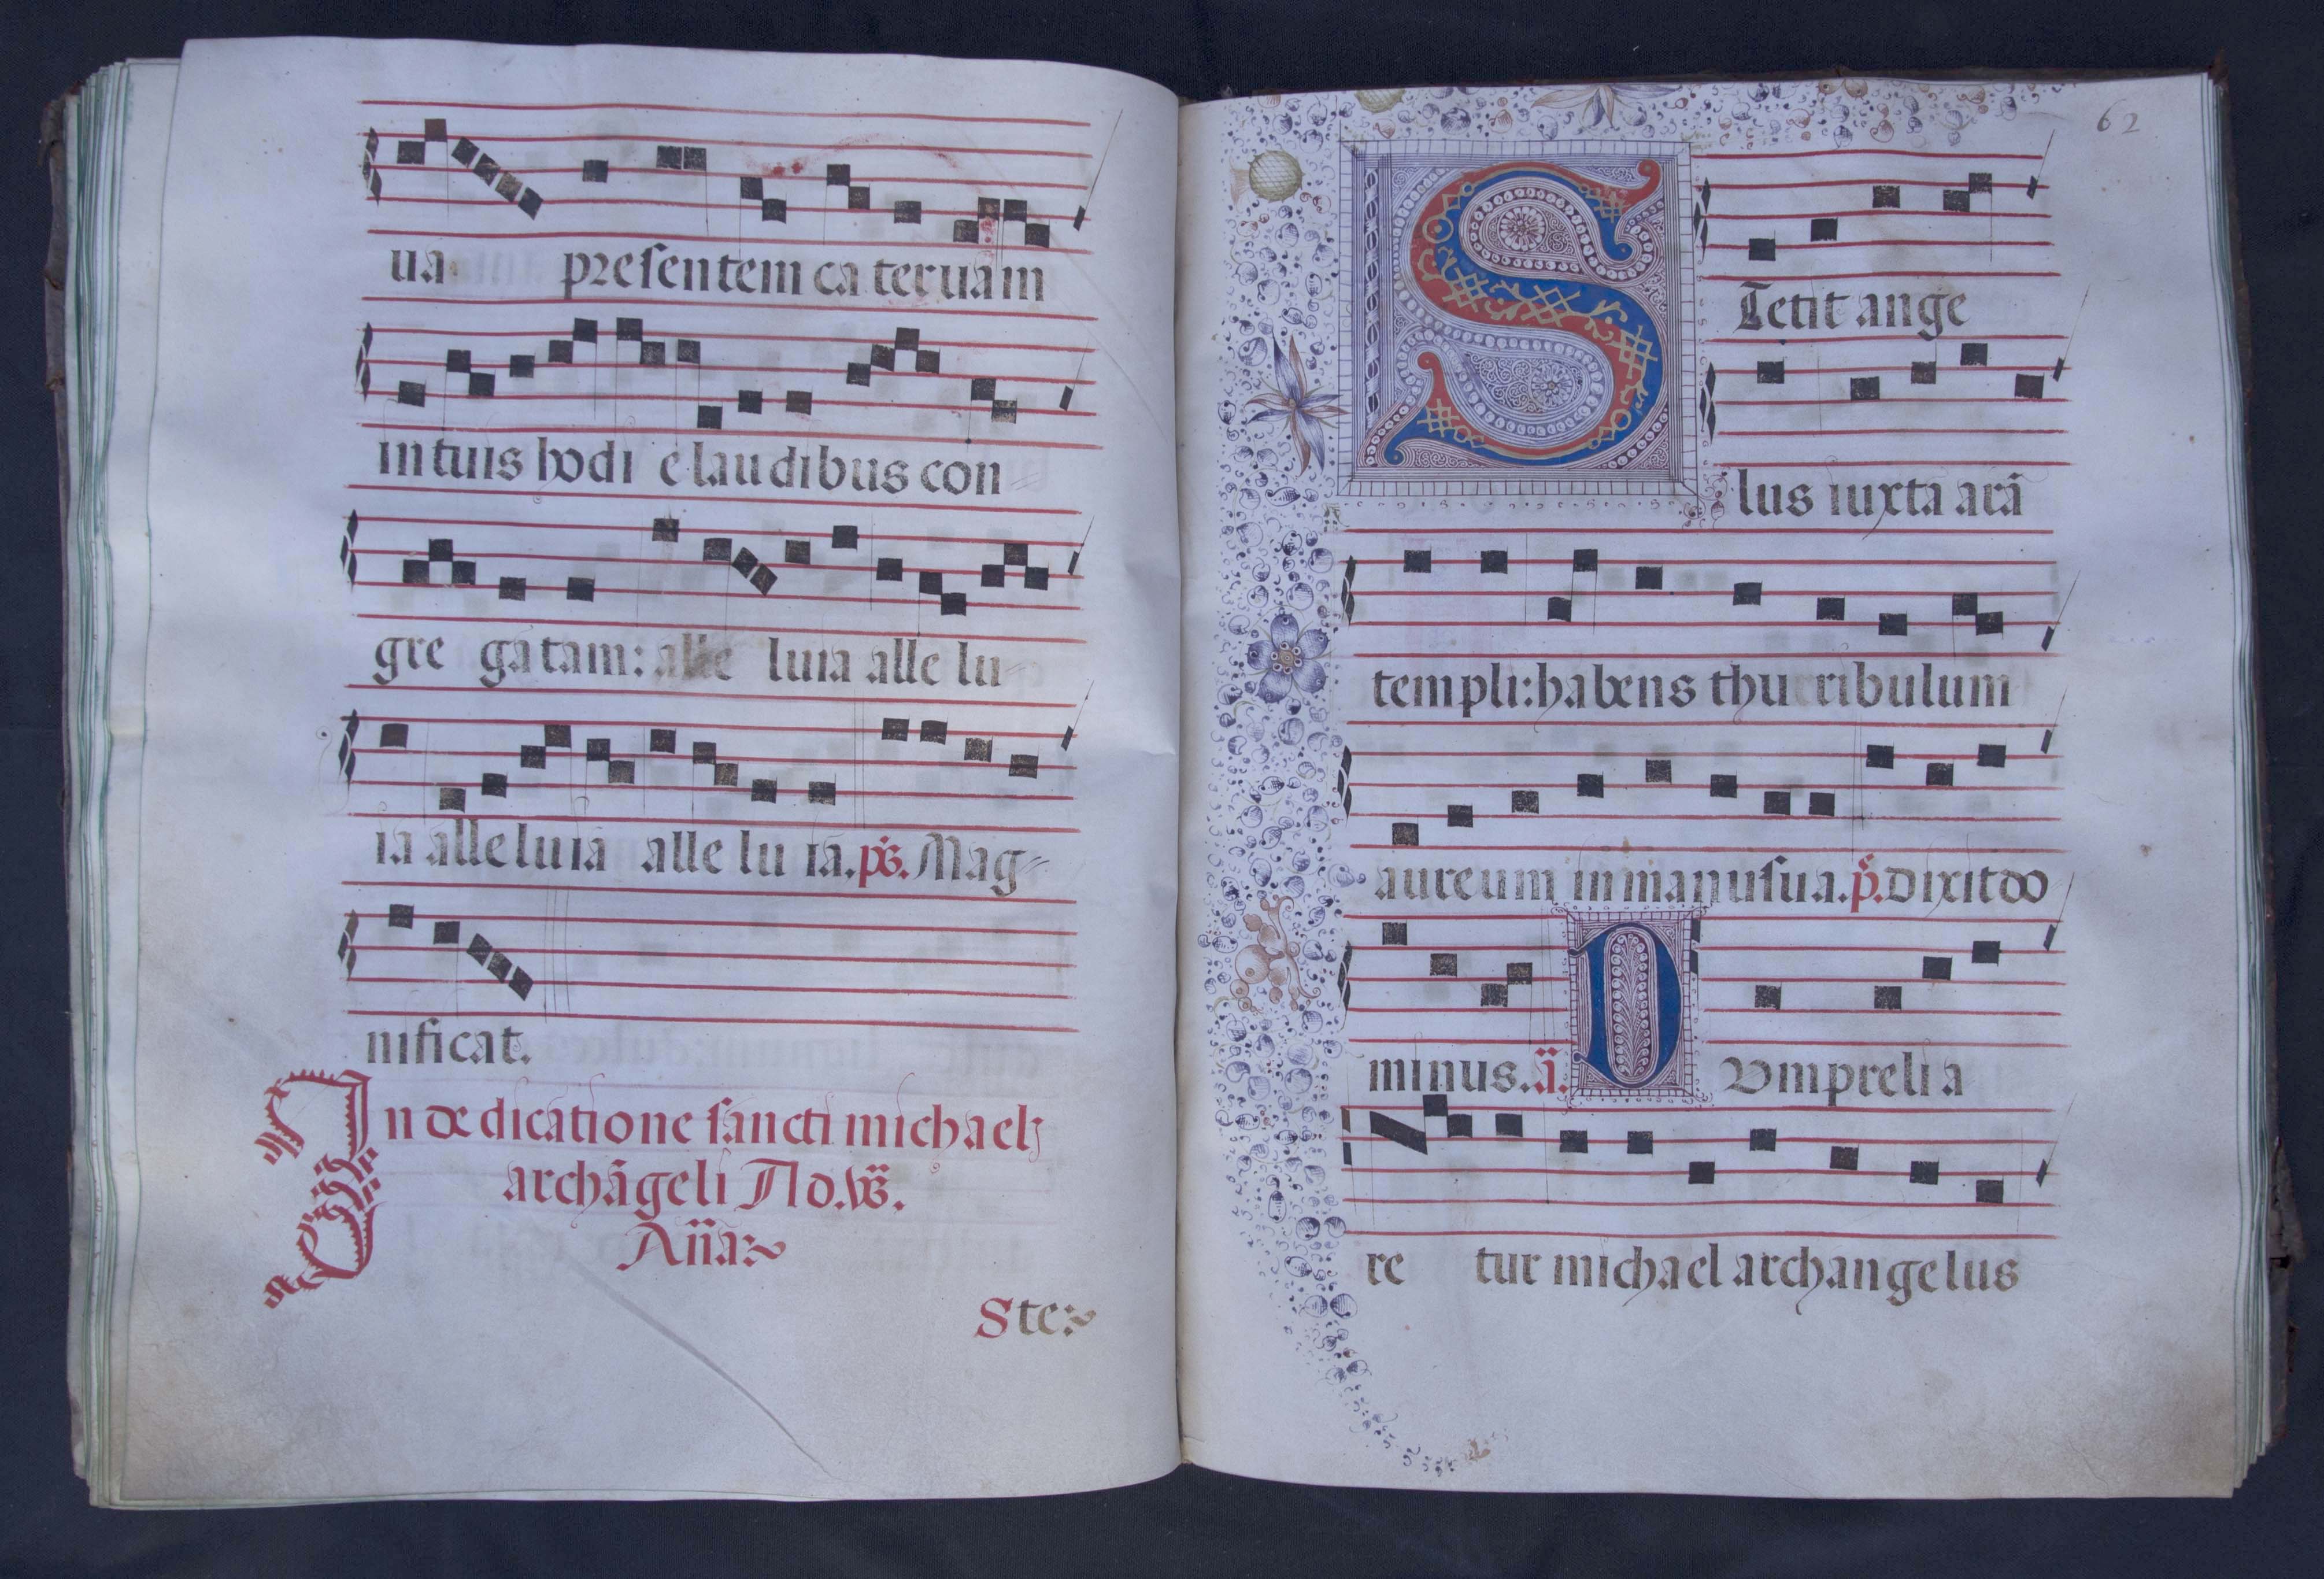 ua presentem ca teruam
in tuis hodi e laudibus con
gre ga tam: alle luia alle lu
ia alleluia alle lu ia. ps. Mag
nificat.
In dedicatione sancti michaelꝫ
archãgeli Ad. vs.
Aña:~
Ste:~
62
S Tetit ange
lus iuxta arã
templi: habens thu ribulum
aureum in manu sua. p̃. Dixit do
minus. ã. D Vmpreli a
re tur michael archangelus